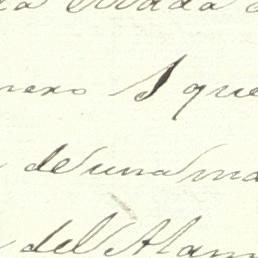 la errada
nero I que
de una ma
del Alam